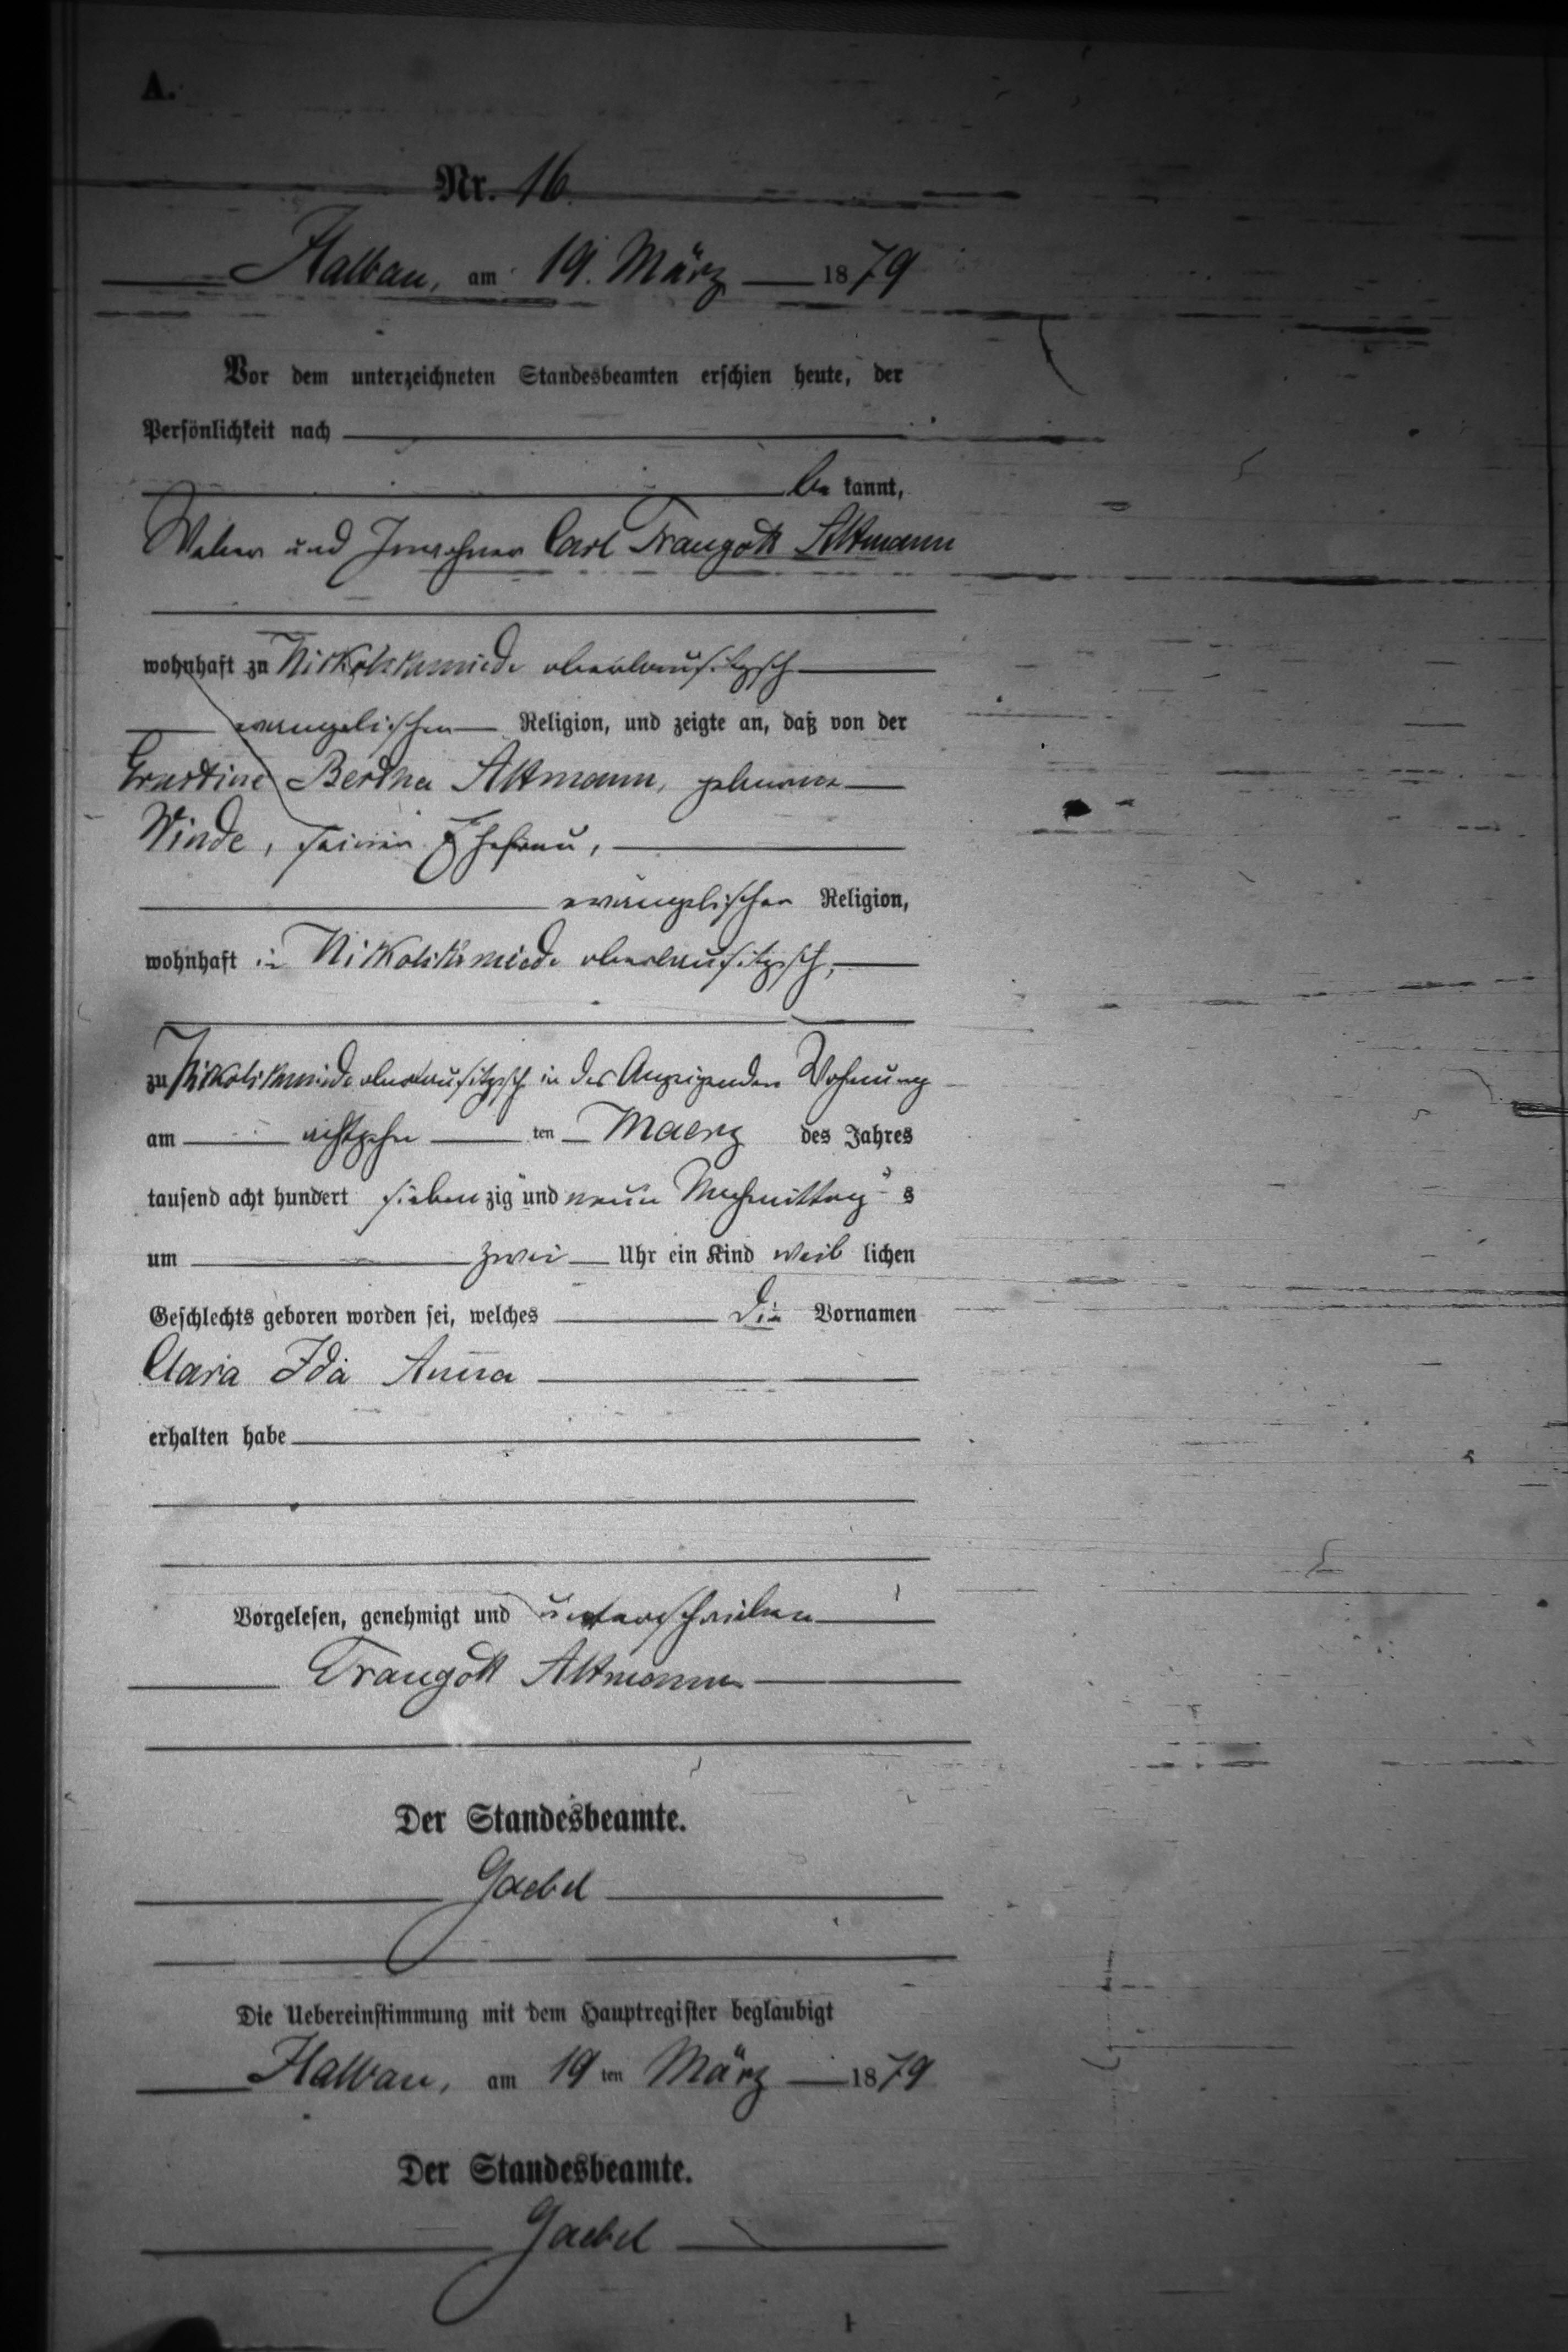 A.
Nr. 16.
Halbau, am 19. März 1879
Vor dem unterzeichneten Standesbeamten erschien heute, der
Persönlichkeit nach
be kannt,
Weber und Inwohner Carl Traugott Altmann
wohnhaft zu Nikolschmiede oberlausitzsch
evangelischer Religion, und zeigte an, daß von der
Ernstine Bertha Altmann, geborne
Winde, seiner Ehefrau,
evangelischer Religion,
wohnhaft in Nikolschmiede oberlausitzsch,
zu Nikolschmiede oberlausitzsch in des Anzeigenden Wohnung
am achtzehn ten Maerz des Jahres
tausend acht hundert sieben zig und neun Nachmittag s
um zwei Uhr ein Kind weib lichen
Geschlechts geboren worden sei, welches die Vornamen
Clara Ida Anna
erhalten habe
Vorgelesen, genehmigt und unterschrieben
Traugott Altmann
Der Standesbeamte.
Gaebel
Die Uebereinstimmung mit dem Hauptregister beglaubigt
Halbau, am 19 ten März 1879
Der Standesbeamte.
Gaebel